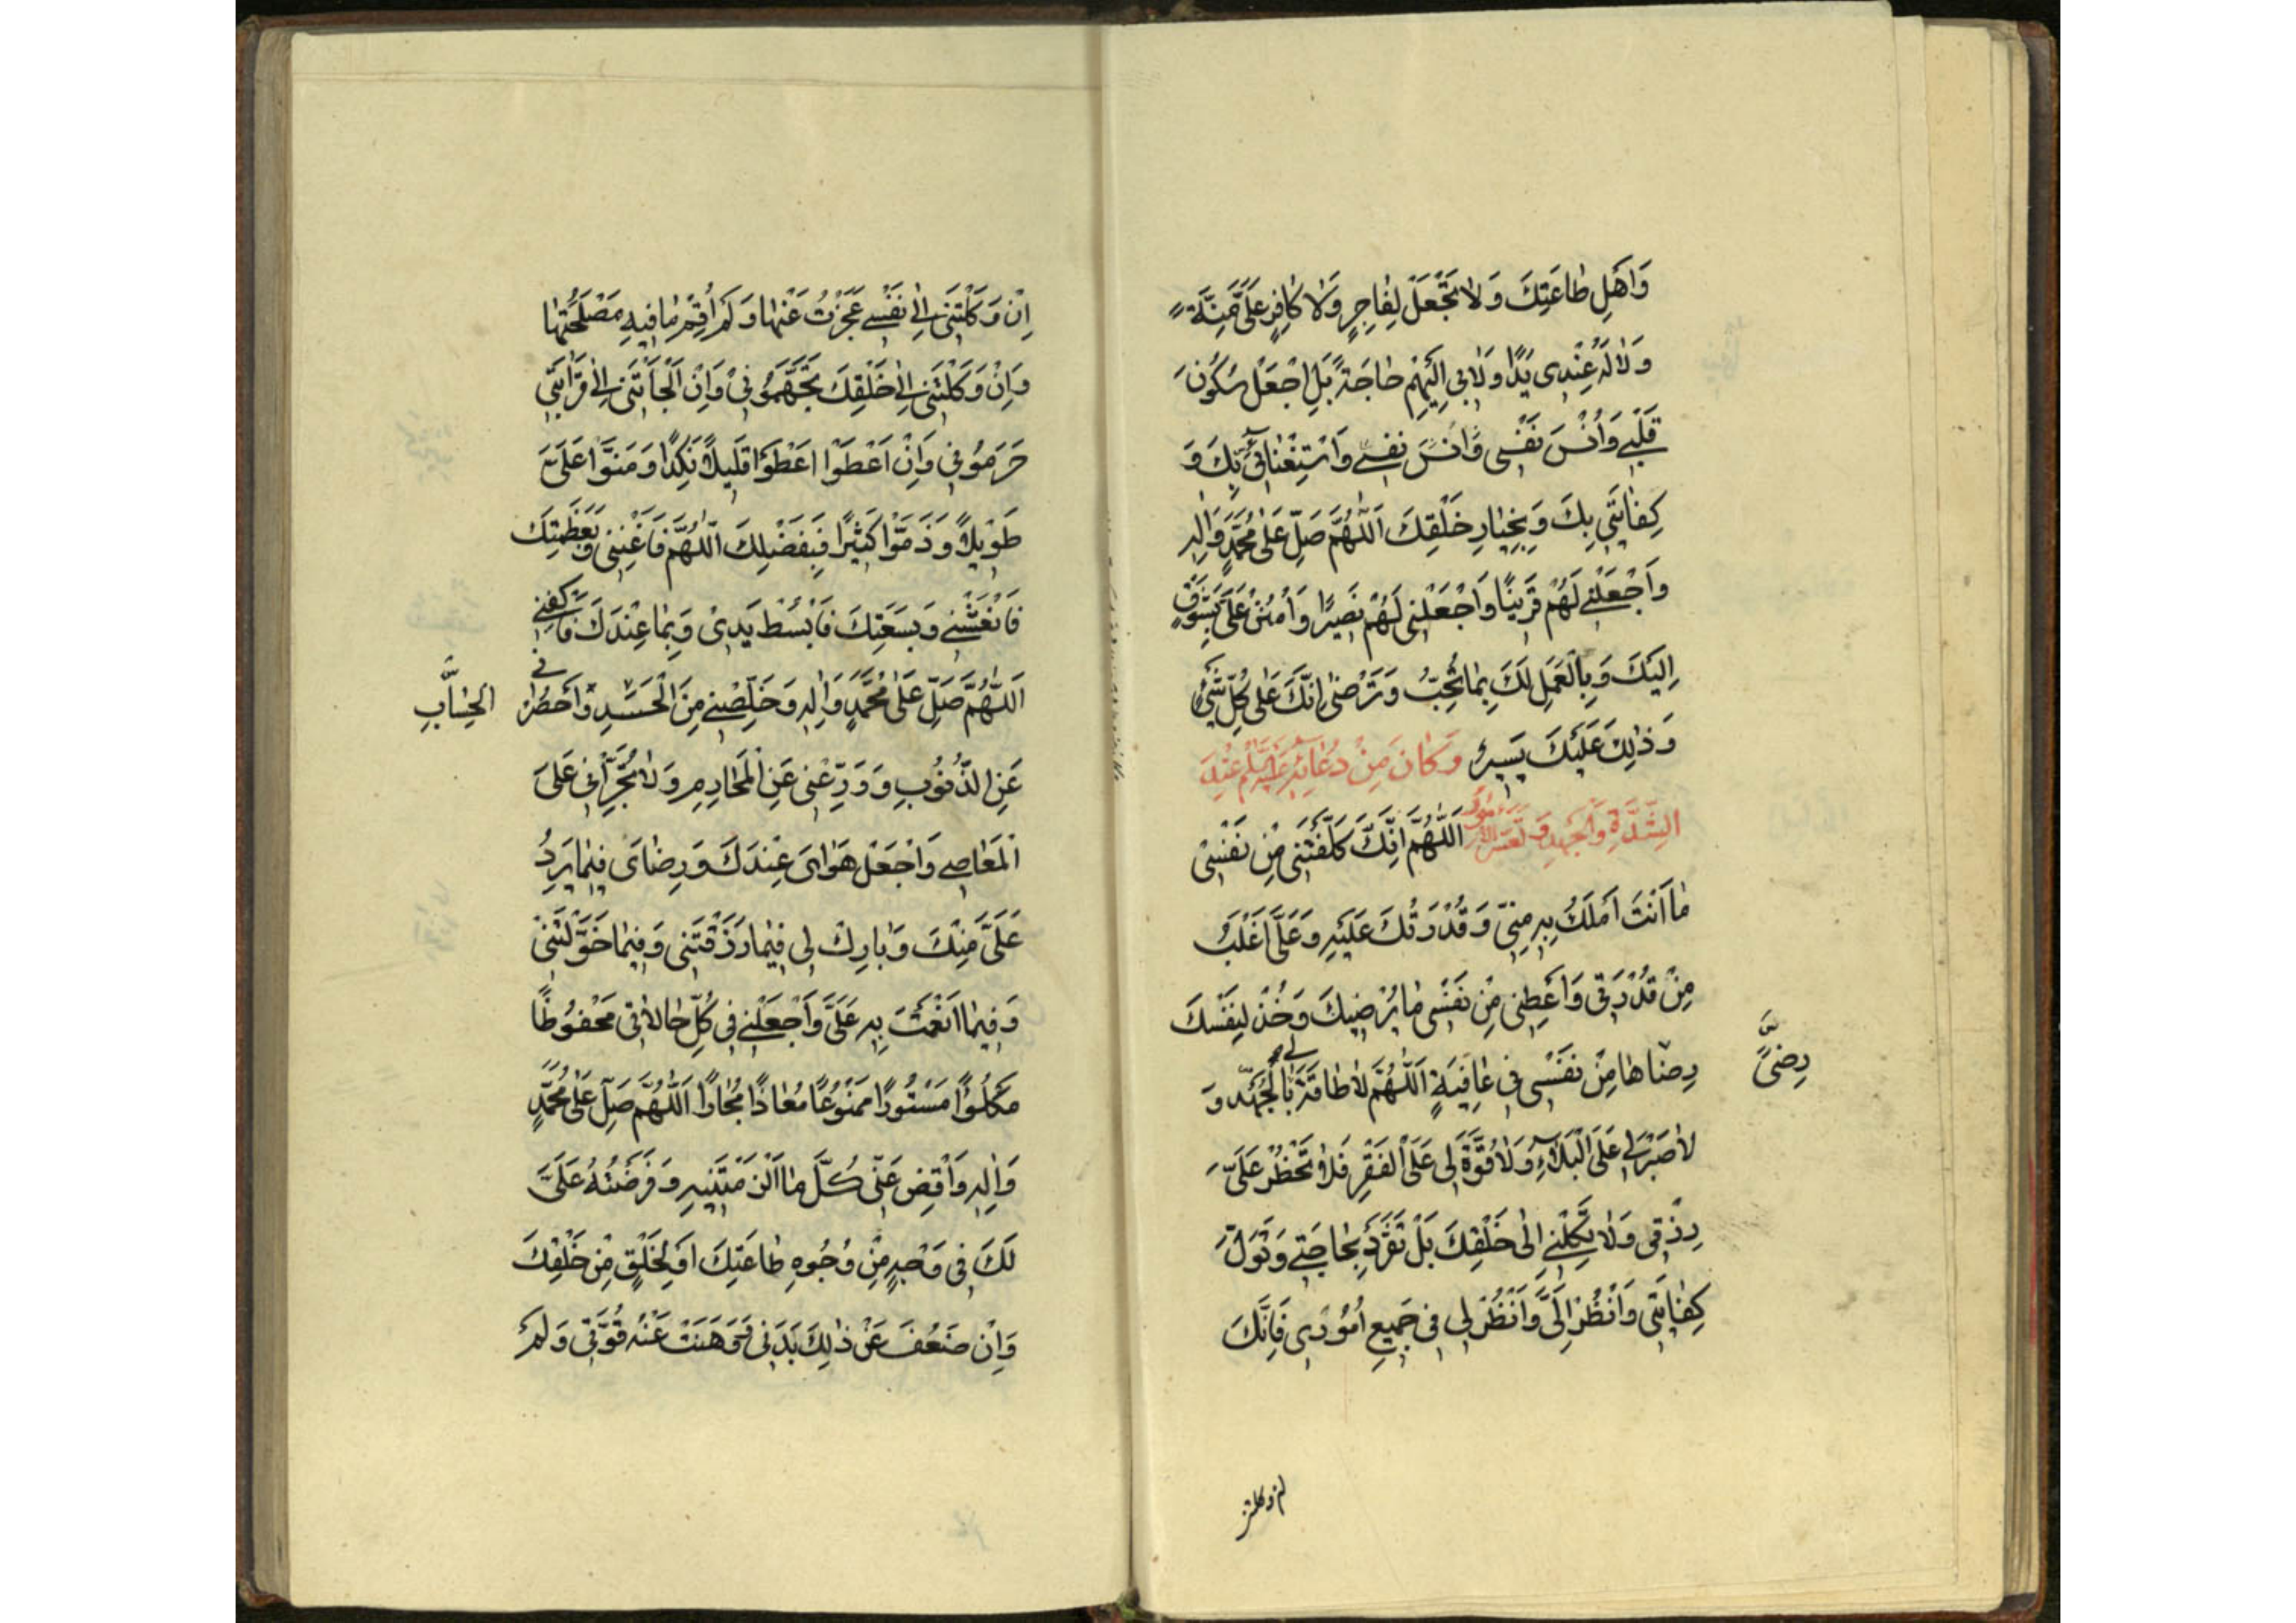 وَاَهْلِ طَاعَتِكَ وَلَا تَجْعَلْ لِفَاجِرٍ وَلَا كَافِرٍ عَلَيَّ مِنَّةً
وَلَا لَهُ عِنْدِي يَدًا وَلَا بِي اِلَيْهِمْ حَاجَةً بَلِ اجْعَلْ سُكُونَ
قَلْبِي وَاُنْسَ نَفْسِي وَاُنْسَ نَفْسِي وَاسْتِغْنَائِي بِكَ وَ
كِفَايَتِي بِكَ وَبِخِيَارِ خَلْقِكَ اَللّٰهُمَّ صَلِّ عَلٰى مُحَمَّدٍ وَاٰلِهِ
وَاجْعَلْنِي لَهُمْ قَرِينًا وَاجْعَلْنِي لَهُمْ نَصِيرًا وَامْنُنْ عَلَيَّ بِشَوْقٍ
اِلَيْكَ وَبِالْعَمَلِ لَكَ بِمَا تُحِبُّ وَتَرْضٰى اِنَّكَ عَلٰى كُلِّ شَيْءٍ
وَذٰلِكَ عَلَيْكَ يَسِيرٌ وَكَانَ مِنْ دُعَائِهِ عَلَيْهِ السَّلٰمُ عِنْدَ
الشِّدَّةِ وَالْجَهْدِ وَتَعَسُّرِ الْاُمُورِ اَللّٰهُمَّ اِنَّكَ كَلَّفْتَنِي مِنْ نَفْسِي
مَا اَنْتَ اَمْلَكُ بِهِ مِنِّي وَقُدْرَتُكَ عَلَيْهِ وَعَلَيَّ اَغْلَبُ
مِنْ قُدْرَتِي وَاَعْطِنِي مِنْ نَفْسِي مَا يُرْضِيكَ وَخُذْ لِنَفْسِكَ
رِضَاهَا مِنْ نَفْسِي فِي عَافِيَةٍ اَللّٰهُمَّ لَا طَاقَةَ لِي بِالْجَهْدِ وَ
رِضًى
لَا صَبْرَ لِي عَلَى الْبَلَاءِ وَلَا قُوَّةَ لِي عَلَى الْفَقْرِ فَلَا تَحْظُرْ عَلَيَّ
رِزْقِي وَلَا تَكِلْنِي اِلٰى خَلْقِكَ بَلْ تَفَرَّدْ بِحَاجَتِي وَتَوَلَّ
كِفَايَتِي وَانْظُرْ اِلَيَّ وَانْظُرْ لِي فِي جَمِيعِ اُمُورِي فَاِنَّكَ
اِنْ وَكَلْتَنِي اِلٰى نَفْسِي عَجَزْتُ عَنْهَا وَلَمْ اُقِمْ مَا فِيهِ مَصْلَحَتُهَا
وَاِنْ وَكَلْتَنِي اِلٰى خَلْقِكَ تَجَهَّمُونِي وَاِنْ اَلْجَأْتَنِي اِلٰى قَرَابَتِي
حَرَمُونِي وَاِنْ اَعْطَوْا اَعْطَوْا قَلِيلًا نَكِدًا وَمَنُّوا عَلَيَّ
طَوِيلًا وَذَمُّوا كَثِيرًا فَبِفَضْلِكَ اَللّٰهُمَّ فَاَغْنِنِي وَبِعَظَمَتِكَ
فَانْعَشْنِي وَبِسَعَتِكَ فَابْسُطْ يَدِي وَبِمَا عِنْدَكَ فَاكْفِنِي
اَللّٰهُمَّ صَلِّ عَلٰى مُحَمَّدٍ وَاٰلِهِ وَخَلِّصْنِي مِنَ الْحَسَدِ وَاحْصُرْنِي
الْحِسَابِ
عَنِ الذُّنُوبِ وَوَرِّعْنِي عَنِ الْمَحَارِمِ وَلَا تُجَرِّئْنِي عَلَى
الْمَعَاصِي وَاجْعَلْ هَوَايَ عِنْدَكَ وَرِضَايَ فِيمَا يَرِدُ
عَلَيَّ مِنْكَ وَبَارِكْ لِي فِيمَا رَزَقْتَنِي وَفِيمَا خَوَّلْتَنِي
وَفِيمَا اَنْعَمْتَ بِهِ عَلَيَّ وَاجْعَلْنِي فِي كُلِّ حَالَاتِي مَحْفُوظًا
مَكْلُوءًا مَسْتُورًا مَمْنُوعًا مُعَاذًا مُجَارًا اَللّٰهُمَّ صَلِّ عَلٰى مُحَمَّدٍ
وَاٰلِهِ وَاقْضِ عَنِّي كُلَّ مَا اَلْزَمْتَنِيهِ وَفَرَضْتَهُ عَلَيَّ
لَكَ فِي وَجْهٍ مِنْ وُجُوهِ طَاعَتِكَ اَوْ لِخَلْقٍ مِنْ خَلْقِكَ
وَاِنْ ضَعُفَ عَنْ ذٰلِكَ بَدَنِي وَوَهَنَتْ عَنْهُ قُوَّتِي وَلَمْ